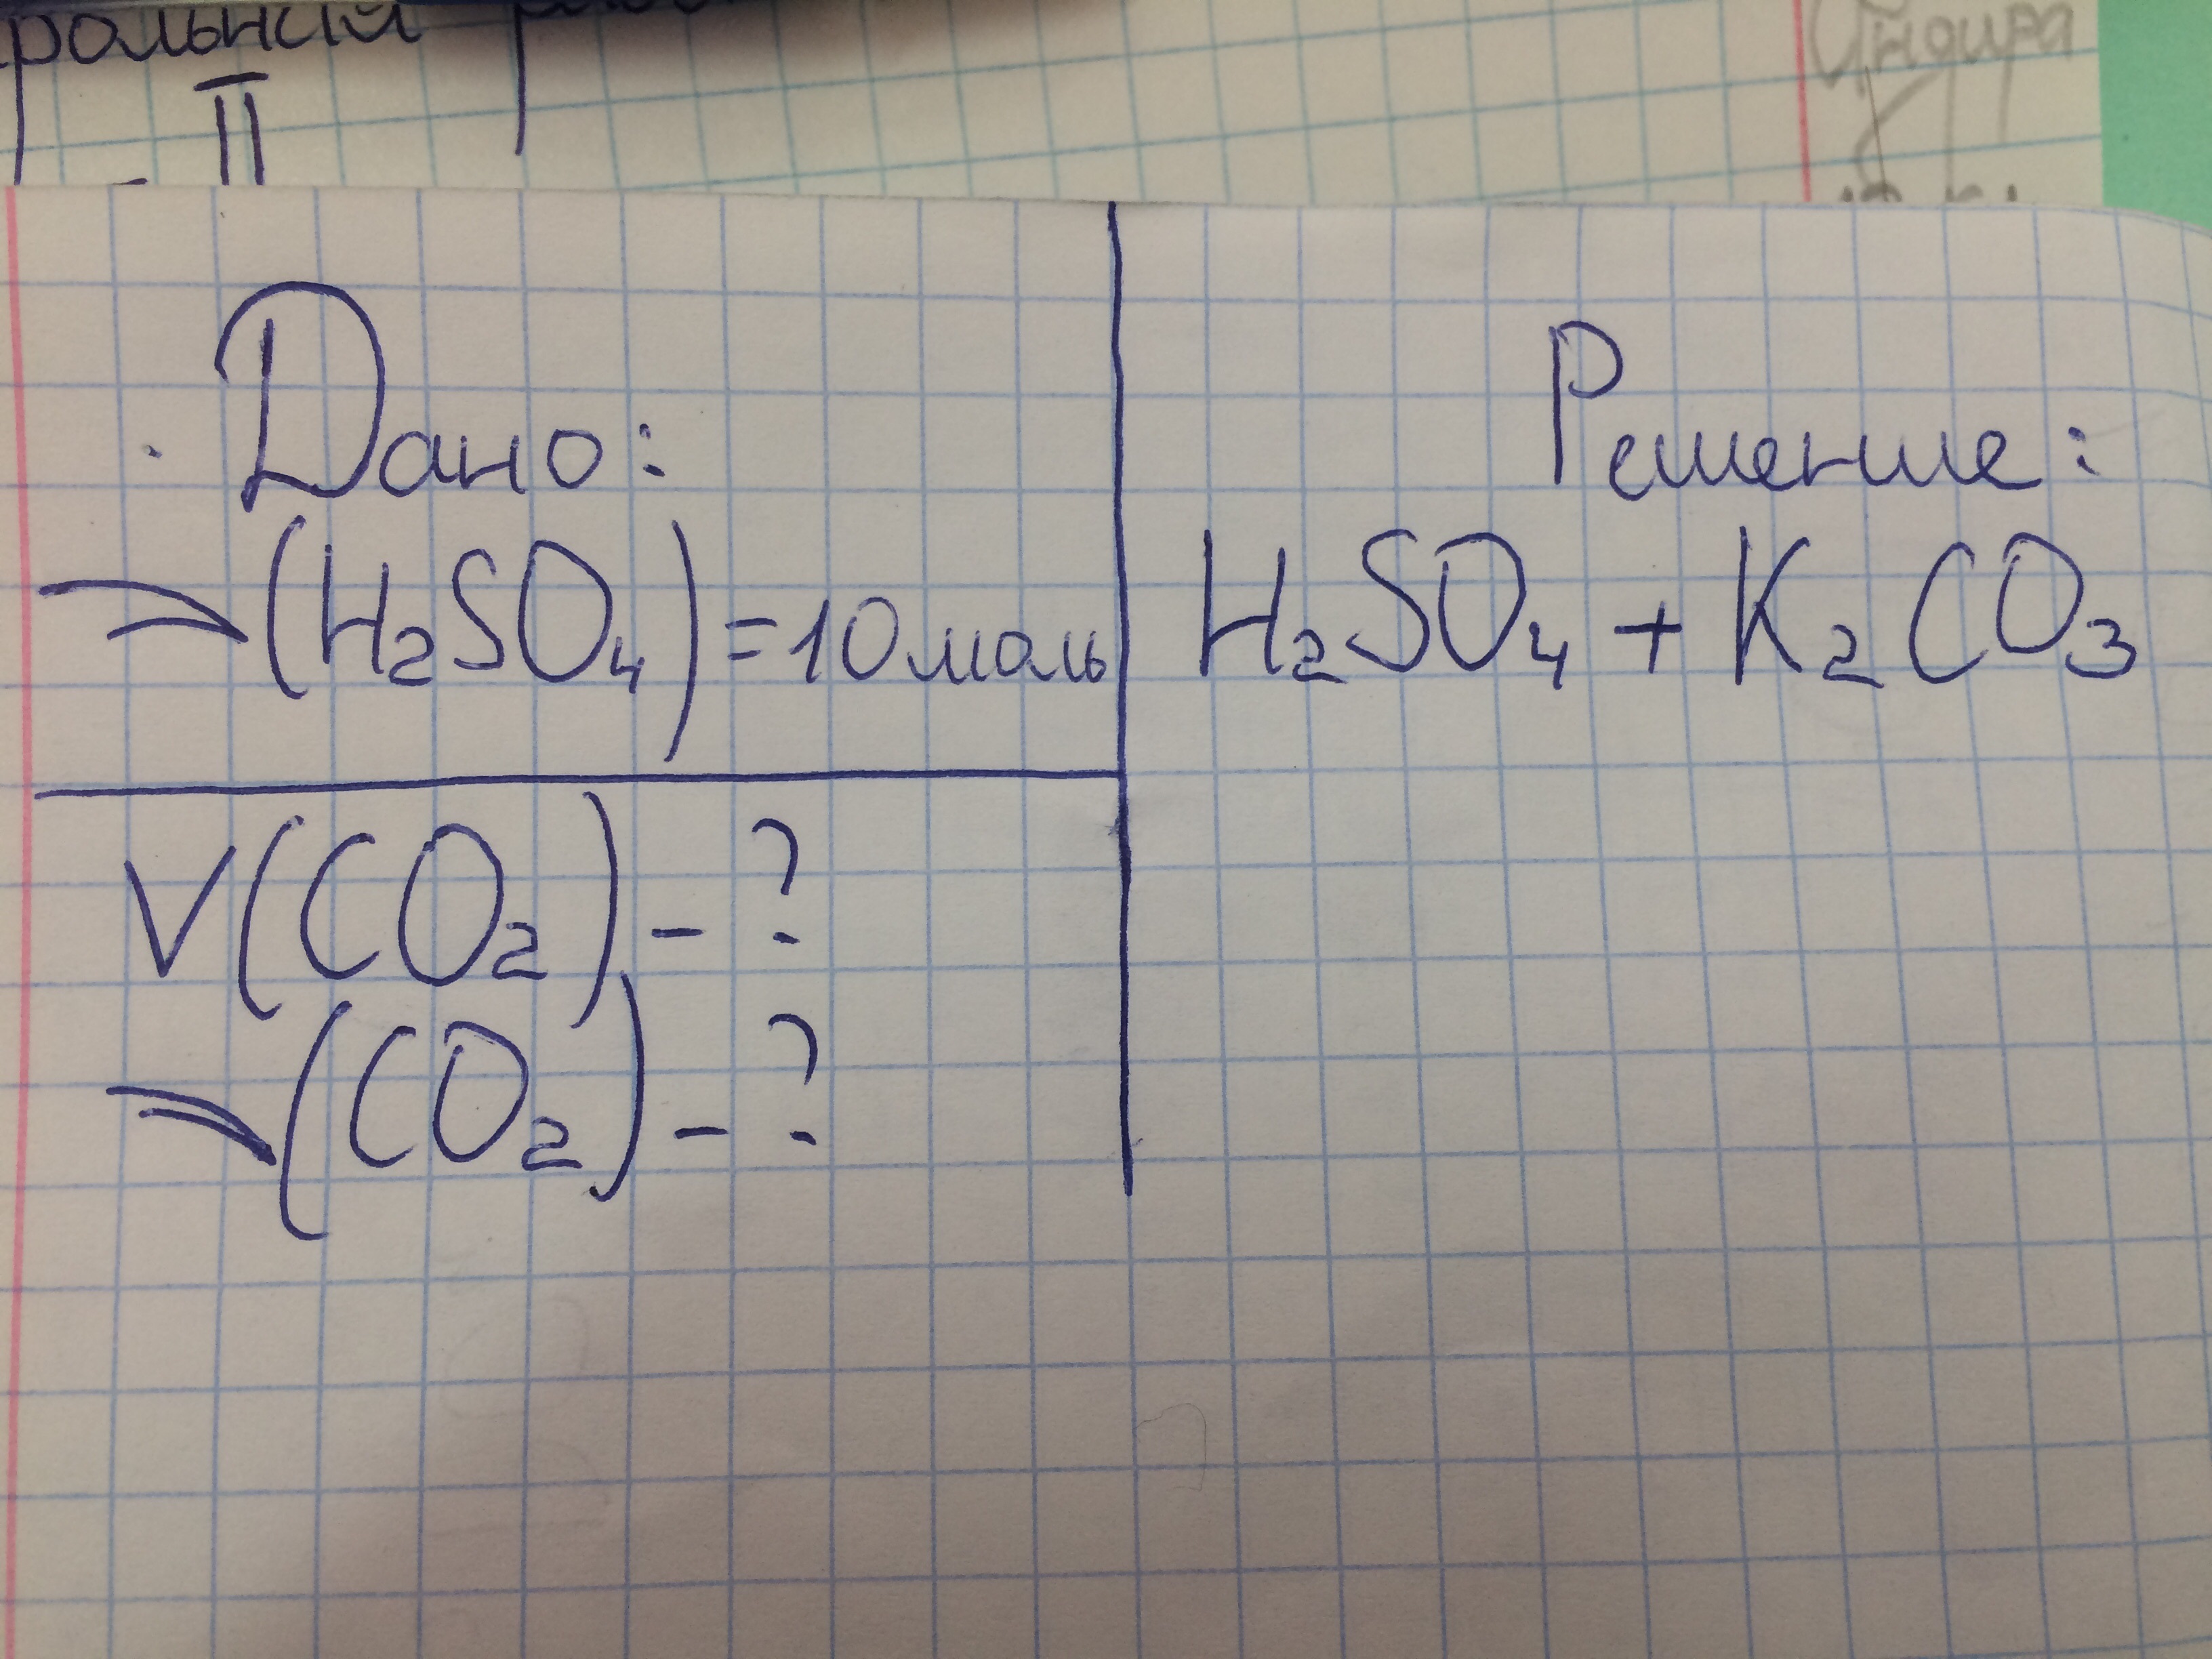 II
Дано:
(H₂SO₄) = 10 моль
V(CO₂) - ?
(CO₂) - ?
Решение:
H₂SO₄ + K₂CO₃